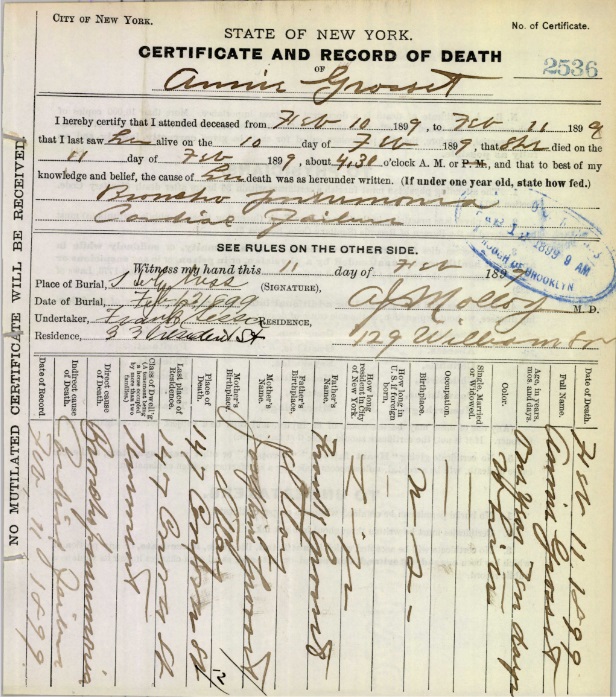 CITY OF NEW YORK.
No. of Certificate.
STATE OF NEW YORK.
CERTIFICATE AND RECORD OF DEATH
OF
2536
Annie Grosset
I hereby certify that I attended deceased from Feb 10 1899, to Feb 11 1899
that I last saw her alive on the 10 day of Feb 1899, that she died on the
11 day of Feb 1899, about 4,30 o'clock A. M. or P. M., and that to best of my
knowledge and belief, the cause of her death was as hereunder written. (If under one year old, state how fed.)
Broncho pneumonia
Cardiac Failure
1899 9 AM
BROOKLYN
SEE RULES ON THE OTHER SIDE.
Witness my hand this 11 day of Feb 189
Place of Burial,
(SIGNATURE), Molloy M. D.
Date of Burial, Feb 1899
Undertaker, Frank
RESIDENCE, 129 William St
Residence, St
NO MUTILATED CERTIFICATE WILL BE RECEIVED
Date of Death. Feb 11. 1899
Full Name. Annie Grosset
Age, in years, mos. and days. One year Ten days
Color. White
Single, Married or Widowed. —
Occupation. —
Birthplace. N — Y —
How long in U. S. if foreign born. —
How long resident in City of New York.
Father's Name. Frank Grosset
Father's Birthplace. Italy
Mother's Name. Grosset
Mother's Birthplace. Italy
Place of Death. 47 Carroll St
12
Last place of Residence. 47 Carroll St
Class of Dwell'g (A tenement being a house occupied by more than two families.) Tenement
Direct cause of Death. Broncho pneumonia
Indirect cause of Death. Cardiac Failure
Date of Record. Feb 11 1899